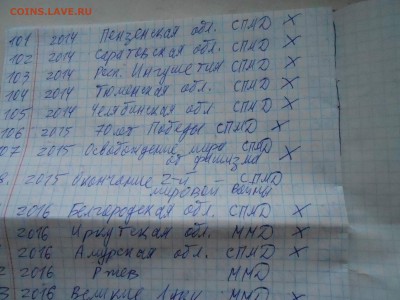 COINS.LAVE.RU
101 2014 Пензенская обл. СПМД X
102 2014 Саратовская обл. СПМД X
103 2014 Респ. Ингушетия СПМД X
104 2014 Тюменская обл. СПМД X
105 2014 Челябинская обл. СПМД X
106 2015 70 лет Победы СПМД X
07 2015 Освобождение мира СПМД X
от фашизма
8. 2015 Окончание 2-й СПМД
мировой войны
2016 Белгородская обл. СПМД X
2016 Иркутская обл. ММД X
2016 Амурская обл. СПМД X
2 2016 Ржев ММД
3 2016 Великие Луки ММД X